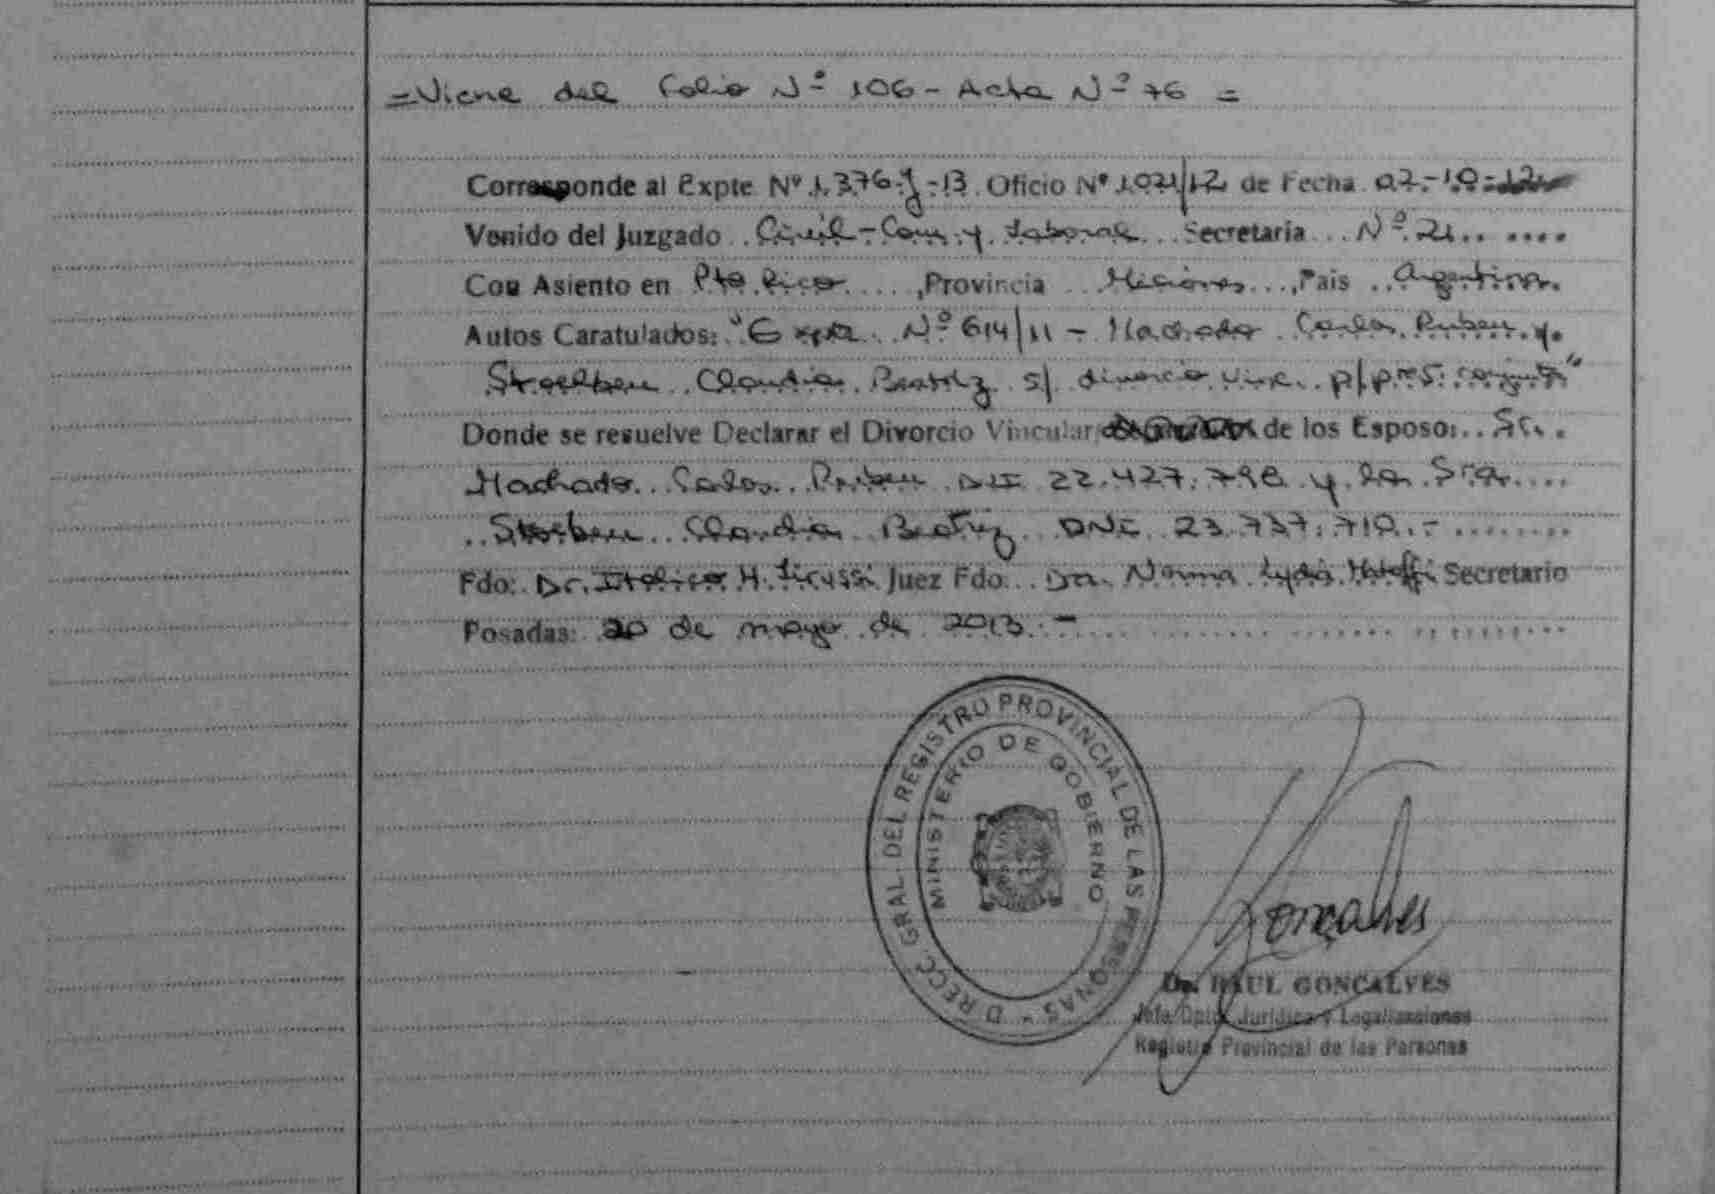 =Viene del Folio Nº 106 - Acta Nº 76 =
Corresponde al Expte Nº 1.376-J-13 Oficio Nº 1021/12 de Fecha 02-10-12
Venido del Juzgado Civil-Com. y Laboral Secretaria Nº 21
Con Asiento en Pto Rico, Provincia Misiones, Pais Argentina.
Autos Caratulados: "Expte Nº 614/11 - Machado Carlos Ruben y
Stoelben Claudia Beatriz s/ divorcio vinc. p/pres. conjunta"
Donde se resuelve Declarar el Divorcio Vincular de los Esposos: Sr.
Machado Carlos Ruben DNI 22.427.798 y la Sra.
Claudia Beatriz DNI 23.737.710.-
Fdo: Dr. H. Juez Fdo: Dra. Norma Lydia Secretario
Posadas: 20 de mayo de 2013.-
DIRECC. GRAL. DEL REGISTRO PROVINCIAL DE LAS PERSONAS -
MINISTERIO DE GOBIERNO
Goncalves
Dr. RAUL GONCALVES
Jefe Dpto. Jurídico y Legalizaciones
Registro Provincial de las Personas